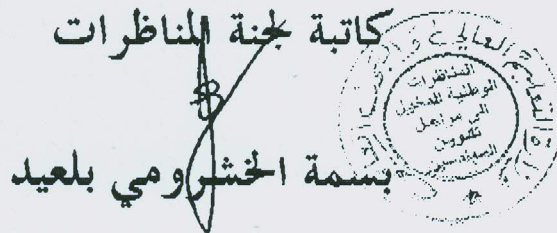 كاتبة لجنة المناظرات
بسمة الخشرومي بلعيد
المناظرات
الوطنية للدخول
الى مراحل
تكوين
المهندسين